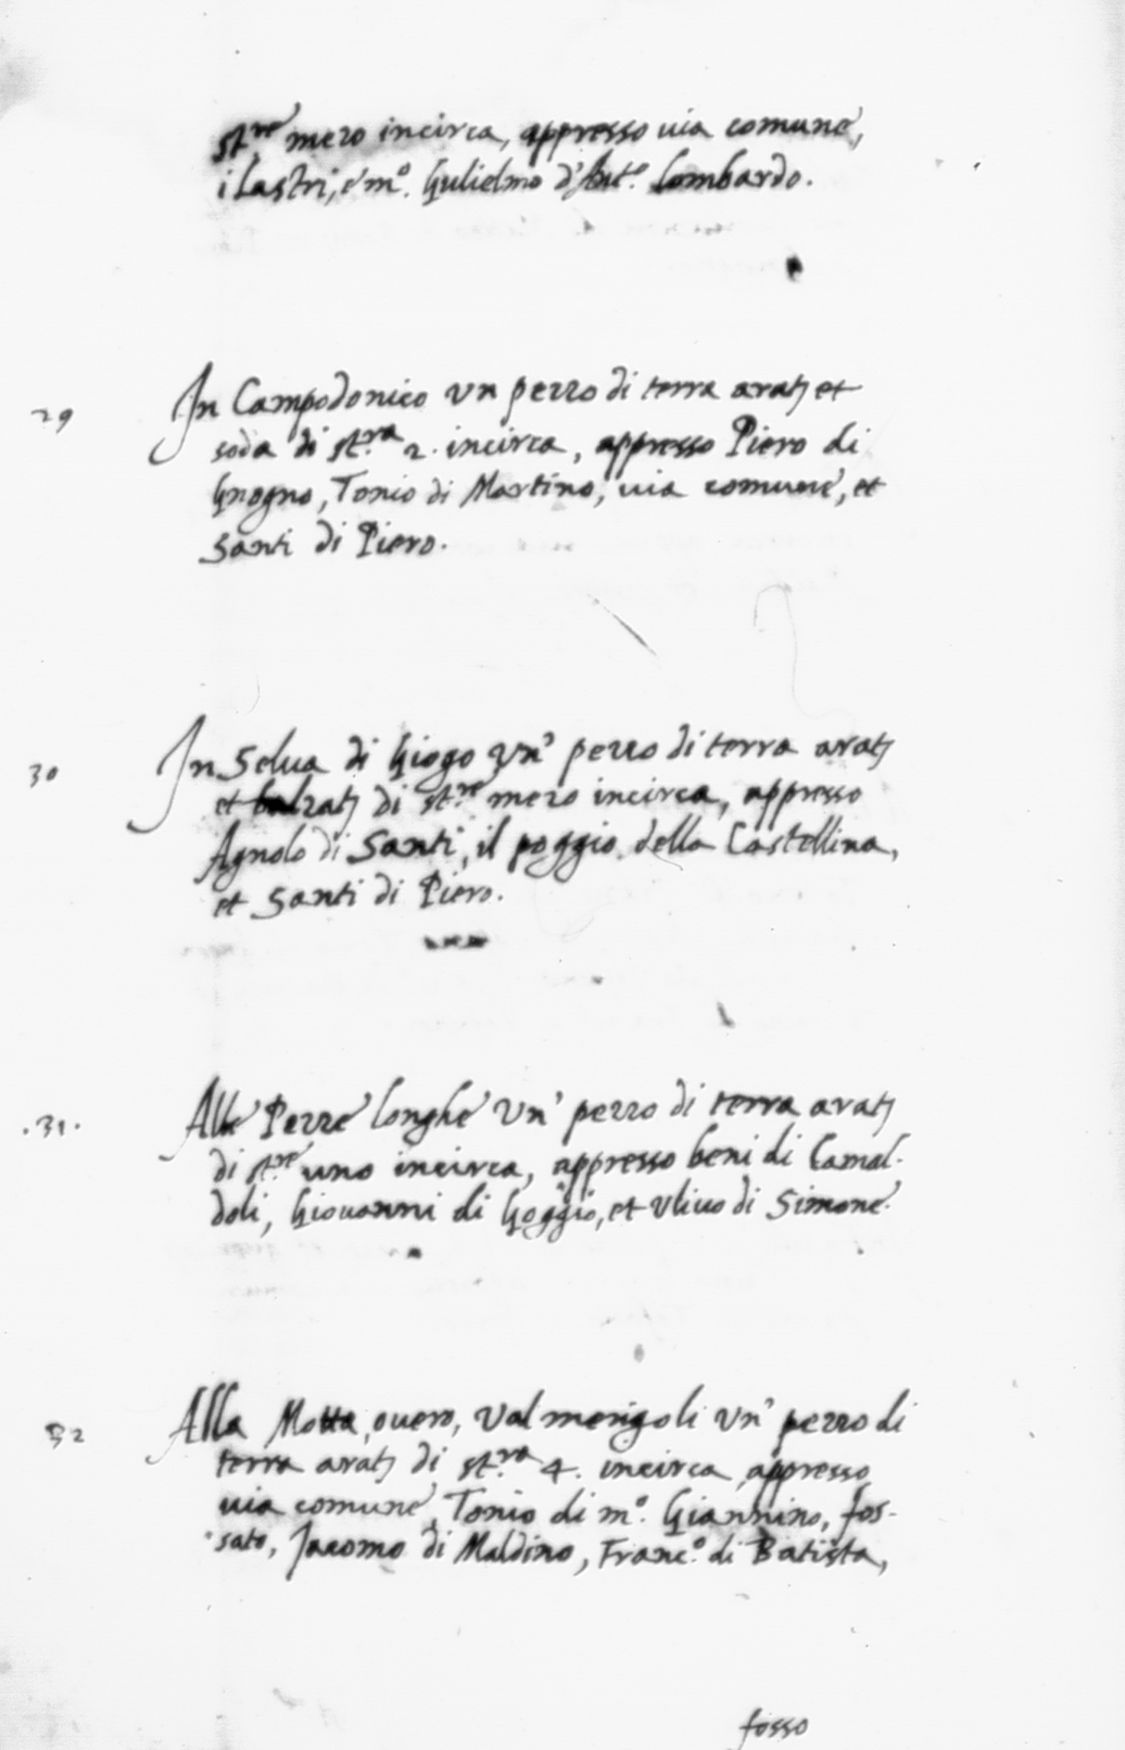 st.re mezo incirca, appresso uia comune,
i Lastri, e m.o Gulielmo d'Ant.o Lombardo.
29 In Campodonico un pezzo di terra arat; et
soda di st.ra 2. incirca, appresso Piero di
Gnogno, Tonio di Martino, uia comune, et
Santi di Piero.
30 In Selua di Giogo un' pezzo di terra arat;
et balzat; di st.re mezo incirca, appresso
Agnolo di Santi, il poggio della Castellina,
et Santi di Piero.
.31. Alle Pezze longhe un' pezzo di terra arat;
di st.re uno incirca, appresso beni di Camal-
doli, Giouanni di Goggio, et Uliuo di Simone.
32 Alla Motta, ouero, Valmerigoli un' pezzo di
terra arat; di st.ra 4. incirca, appresso
uia comune, Tonio di m.o Giannino, fos-
sato, Jacomo di Maldino, Franc.o di Batista,
fosso